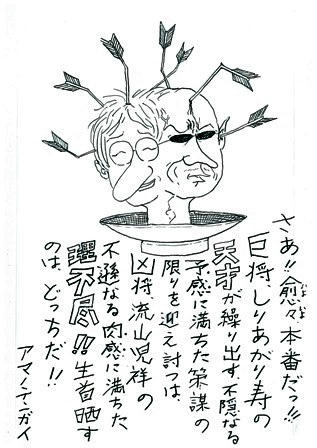 さあ!!愈々本番だっ!!!
いよいよ
巨将、しりあがり寿の
天才が繰り出す不隠なる
予感に満ちた策謀の
限りを迎え討つは、
凶将、流山児祥の
不遜なる肉感に満ちた
不尽!!生首晒す
のは、どっちだ!!
アマノテンガイ